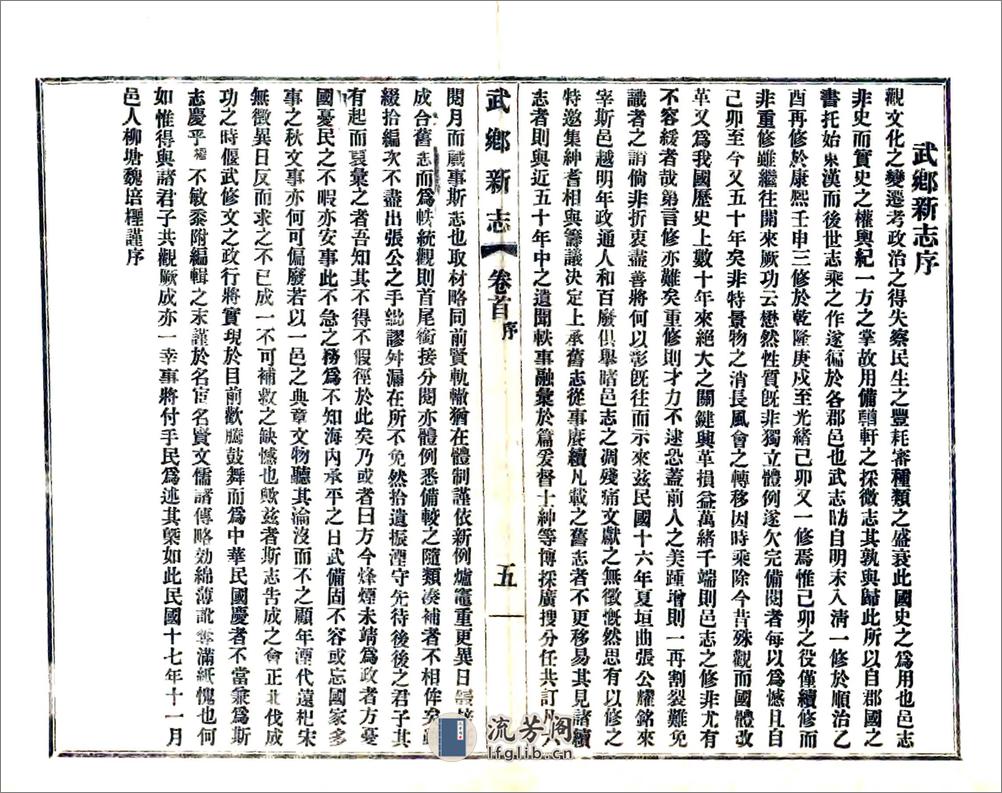 武鄉新志序
觀文化之變遷考政治之得失察民生之豐耗審種類之盛衰此國史之爲用也邑志
非史而實史之權輿紀一方之掌故用備輶軒之採微志其孰與歸此所以自郡國之
書托始東漢而後世志乘之作遂徧於各郡邑也武志昉自明末入清一修於順治乙
酉再修於康熙壬申三修於乾隆庚戍至光緒己卯又一修焉惟己卯之役僅續修而
非重修雖繼往開來厥功云懋然性質旣非獨立體例遂欠完備閱者每以爲憾且自
己卯至今又五十年矣非特景物之消長風會之轉移因時乘除今昔殊觀而國體改
革又爲我國歷史上數十年來絕大之關鍵興革損益萬緒千端則邑志之修非尤有
不容緩者哉第言修亦難矣重修則才力不逮恐蓋前人之美踵增則一再割裂難免
識者之誚倘非折衷盡善將何以彰旣往而示來茲民國十六年夏垣曲張公耀銘來
宰斯邑越明年政通人和百廢俱舉睹邑志之凋殘痛文獻之無徵慨然思有以修之
特邀集紳耆相與籌議決定上承舊志從事賡續凡載之舊志者不更移易其見諸續
志者則與近五十年中之遺聞軼事融彙於篇爰督士紳等博採廣搜分任共訂凡八
武鄉新志 卷首 序 五
閱月而蕆事斯志也取材略同前賢軌轍猶在體制謹依新例爐竈重更異日
成合舊志而爲帙統觀則首尾銜接分閱亦體例悉備較之隨類湊補者不相侔矣
綴拾編次不盡出張公之手紕謬舛漏在所不免然拾遺振湮守先待後後之君子其
有起而裒彙之者吾知其不得不假徑於此矣乃或者曰方今烽煙未靖爲政者方憂
國憂民之不暇亦安事此不急之務爲不知海內承平之日武備固不容或忘國家多
事之秋文事亦何可偏廢若以一邑之典章文物聽其淪沒而不之顧年湮代遠杞宋
無徵異日反而求之不已成一不可補救之缺憾也歟茲者斯志告成之會正北伐成
功之時偃武修文之政行將實現於目前歡騰鼓舞而爲中華民國慶者不當兼爲斯
志慶乎 不敏黍附編輯之末謹於名宦名賢文儒諸傳略効綿薄訛 滿紙愧也何
如惟得與諸君子共觀厥成亦一幸事將付手民爲述其槩如此民國十七年十一月
邑人柳塘魏培 謹序
流芳阁
lfglib.cn